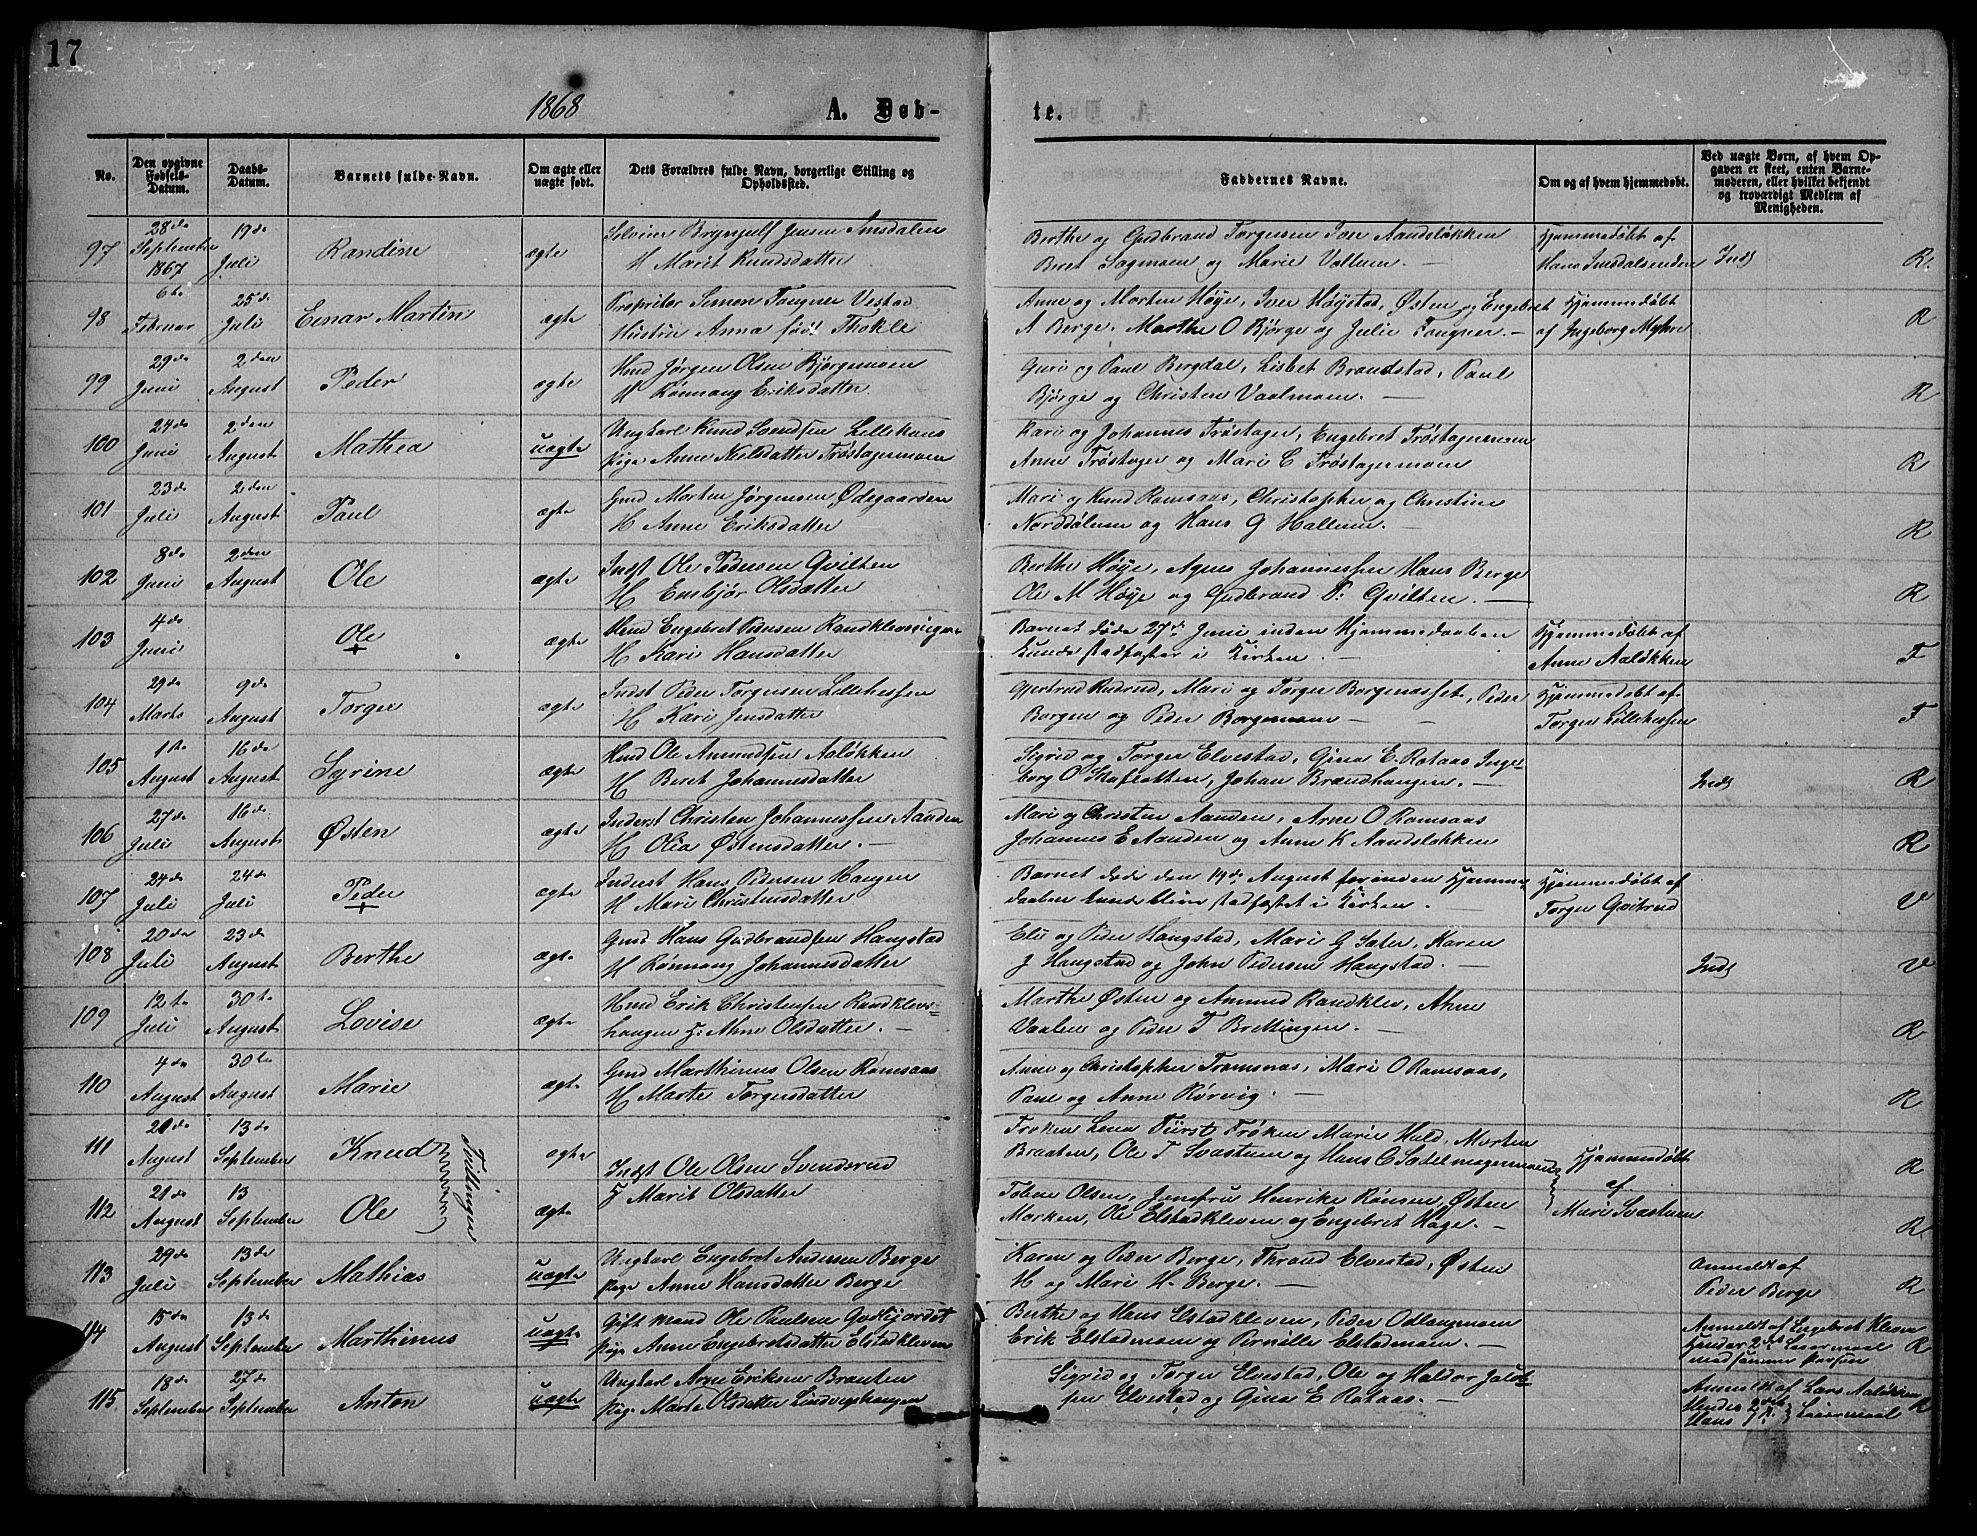 17
1868
A. Døb-
te.
No.
Den opgivne Fødsels-Datum.
Daabs-Datum.
Barnets fulde Navn.
Om ægte eller uægte født.
Dets Forældres fulde Navn, borgerlige Stilling og Opholdssted.
Faddernes Navne.
Om og af hvem hjemmedøbt.
Ved uægte Børn, af hvem Opgaven er skeet, enten Barnemoderen, eller hvilket bekjendt og troværdigt Medlem af Menigheden.
97 28de September 1867 19de Juli Randine ægte Brynjulf Jensen Imsdalen
H Marit Knudsdatter
Berthe og Gudbrand Torgersen Iver Aandsløkken
Beret Sagmoen og Marie Vollum. —
Hjemmedøbt af
Hans Imsdalsenden
Inds
R.
98 6te Februar 25de Juli Einar Martin ægte Propritær Simen Fougner Vestad
Hustru Anna født Thokle
Anne og Morten Høye, Iver Høystad, Østen og Engebret
A Berge. Marthe O Bjørge og Julie Fougner. —
Hjemmedøbt
af Ingeborg Myhre
R
99 29de Juni 2den August Peder ægte Hmd Jørgen Olsen Bjørgemoen
H Rønnaug Eriksdatter.
Guri og Paul Bergdal, Lisbet Brandstad, Paul
Bjørge og Christen Vaalmoen. —
R
100 24de Juni 2den August Mathea uægte Ungkarl Knud Svendsen Lillehaas
Pige Anne Nielsdatter Trøstagermoen
Kari og Johannes Trøstager, Engebret Trøstagermoen
Anne Trøstager og Mari C Trøstagermoen
R
101 23de Juli 2den August Paul ægte Gmd Morten Jørgensen Ødegaarden
H Anne Eriksdatter
Mari og Knud Ramsaas, Christopher og Christine
Norddølum og Hans G Hallum. —
R
102 8de Juni 2den August Ole ægte Inds Ole Pedersen Qvilten
H Embjør Olsdatter
Berthe Høye, Agnes Johannessen Hans Berge
Ole M Høye og Gudbrand P: Qvilten. —
R
103 4de Juni Ole + ægte Hmd Engebret Pedersen
H Kari Hansdatter
Barnet døde 27de Juni inden Hjemmedaaben
kunde stadfæstes i Kirken. —
Hjemmedøbt af
Anne Aaløkken
F
104 29de Marts 9de August Torger ægte Indst Peder Torgersen Lillehessen
H Kari Jensdatter
Gjertrud Rudrud, Mari og Torger Borgenasset, Peder
Borgen og Peder Borgemoen —
Hjemmedøbt af
Torger Lillehessen
F
105 1ste August 16de August Syrine ægte Hmd Ole Amundsen Aaløkken
H Beret Johannesdatter
Sigrid og Torger Elvestad, Gina E. Rotaas Inge-
borg O Skaflotten, Johan Brændhaugen. —
Inds
R
106 27de Juli 16de August Østen ægte Inderst Christen Johannessen Aanden
H Olia Østensdatter. —
Mari og Christen Aanden, Arne O Ramsaas
Johannes E Aanden og Anne K Aandsløkken
R
107 24de Juli 24de Juli Peder + ægte Inderst Hans Pedersen Haugen
H Mari Christensdatter
Barnet døde den 19de August forinden Hjemme-
daaben kunde blive stadfæstet i Kirken. —
Hjemmedøbt af
Torger Qvitrud
V
108 20de Juli 23de August Berthe ægte Gmd Hans Gudbrandsen Haugstad
H Rønnaug Johannesdatter
Eli og Peder Haugstad, Mari G Sæter, Karen
J Haugstad og John Pedersen Haugstad. —
Inds
V
109 12te Juli 30te August Lovise ægte Hmd Erik Christensen Randklevs-
haugen H: Ahne Olsdatter. —
Marthe Østen og Amund Randklev, Ahne
Vaalen og Peder T Brettingen. —
R
110 4de August 30te August Marie ægte Gmd Marthinus Olsen Ramsaas
H Marte Torgersdatter
Anne og Christopher Tromsnæs, Mari O Ramsaas,
Paul og Anne Rørvig. —
R
111 21de August 13de September Knud Tvillinger ægte Indst Ole Olsen Svendsrud
H Marit Olsdatter
Frøken Lena Fürst Frøken Marie Huld, Morten
Braaten, Ole T Svastuen og Hans C Sadelmagermoen
Hjemmedøbt
af
Mari Svastuen
R
112 21de August 13 September Ole ægte
Tobine Olsen, Jomfru Henrike Rønsen, Østen
Morken, Ole Elstadkleven og Engebret Hage. —
R
113 29de Juli 13de September Mathias uægte Ungkarl Engebret Andersen Berge
Pige Anne Hansdatter Berge
Karen og Peder Berge, Thrond Elvestad, Østen
H og Mari H. Berge. —
Anmeldt af
Peder Berge
R
114 15de August 13de September Marthinus uægte Gift Mand Ole Paulsen
Pige Anne Engebretsdatter Elstadkleven
Berthe og Hans Elstadkleven, Peder Odlaugmoen
Erik Elstadmoen og Pernille Elstadmoen. —
Anmeldt af Engebret Kleven
Hendes 2det Leiermaal
med samme Person
R
115 18de September 27de September Anton uægte Ungkarl Arne Eriksen Braaten
Pige Marte Olsdatter Lindvigshaugen
Sigrid og Torger Elvestad, Ole og Haldor Jakob-
sen Elvestad og Gina E Rotaas. —
Anmeldt af Lars Aaløkken
Hendes 2det
Hans 1ste } Leiermaal
R